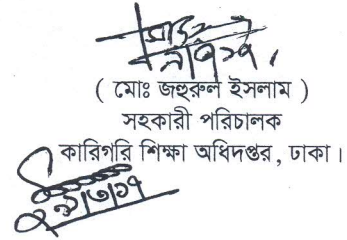 ( মোঃ জহুরুল ইসলাম )
সহকারী পরিচালক
কারিগরি শিক্ষা অধিদপ্তর, ঢাকা।